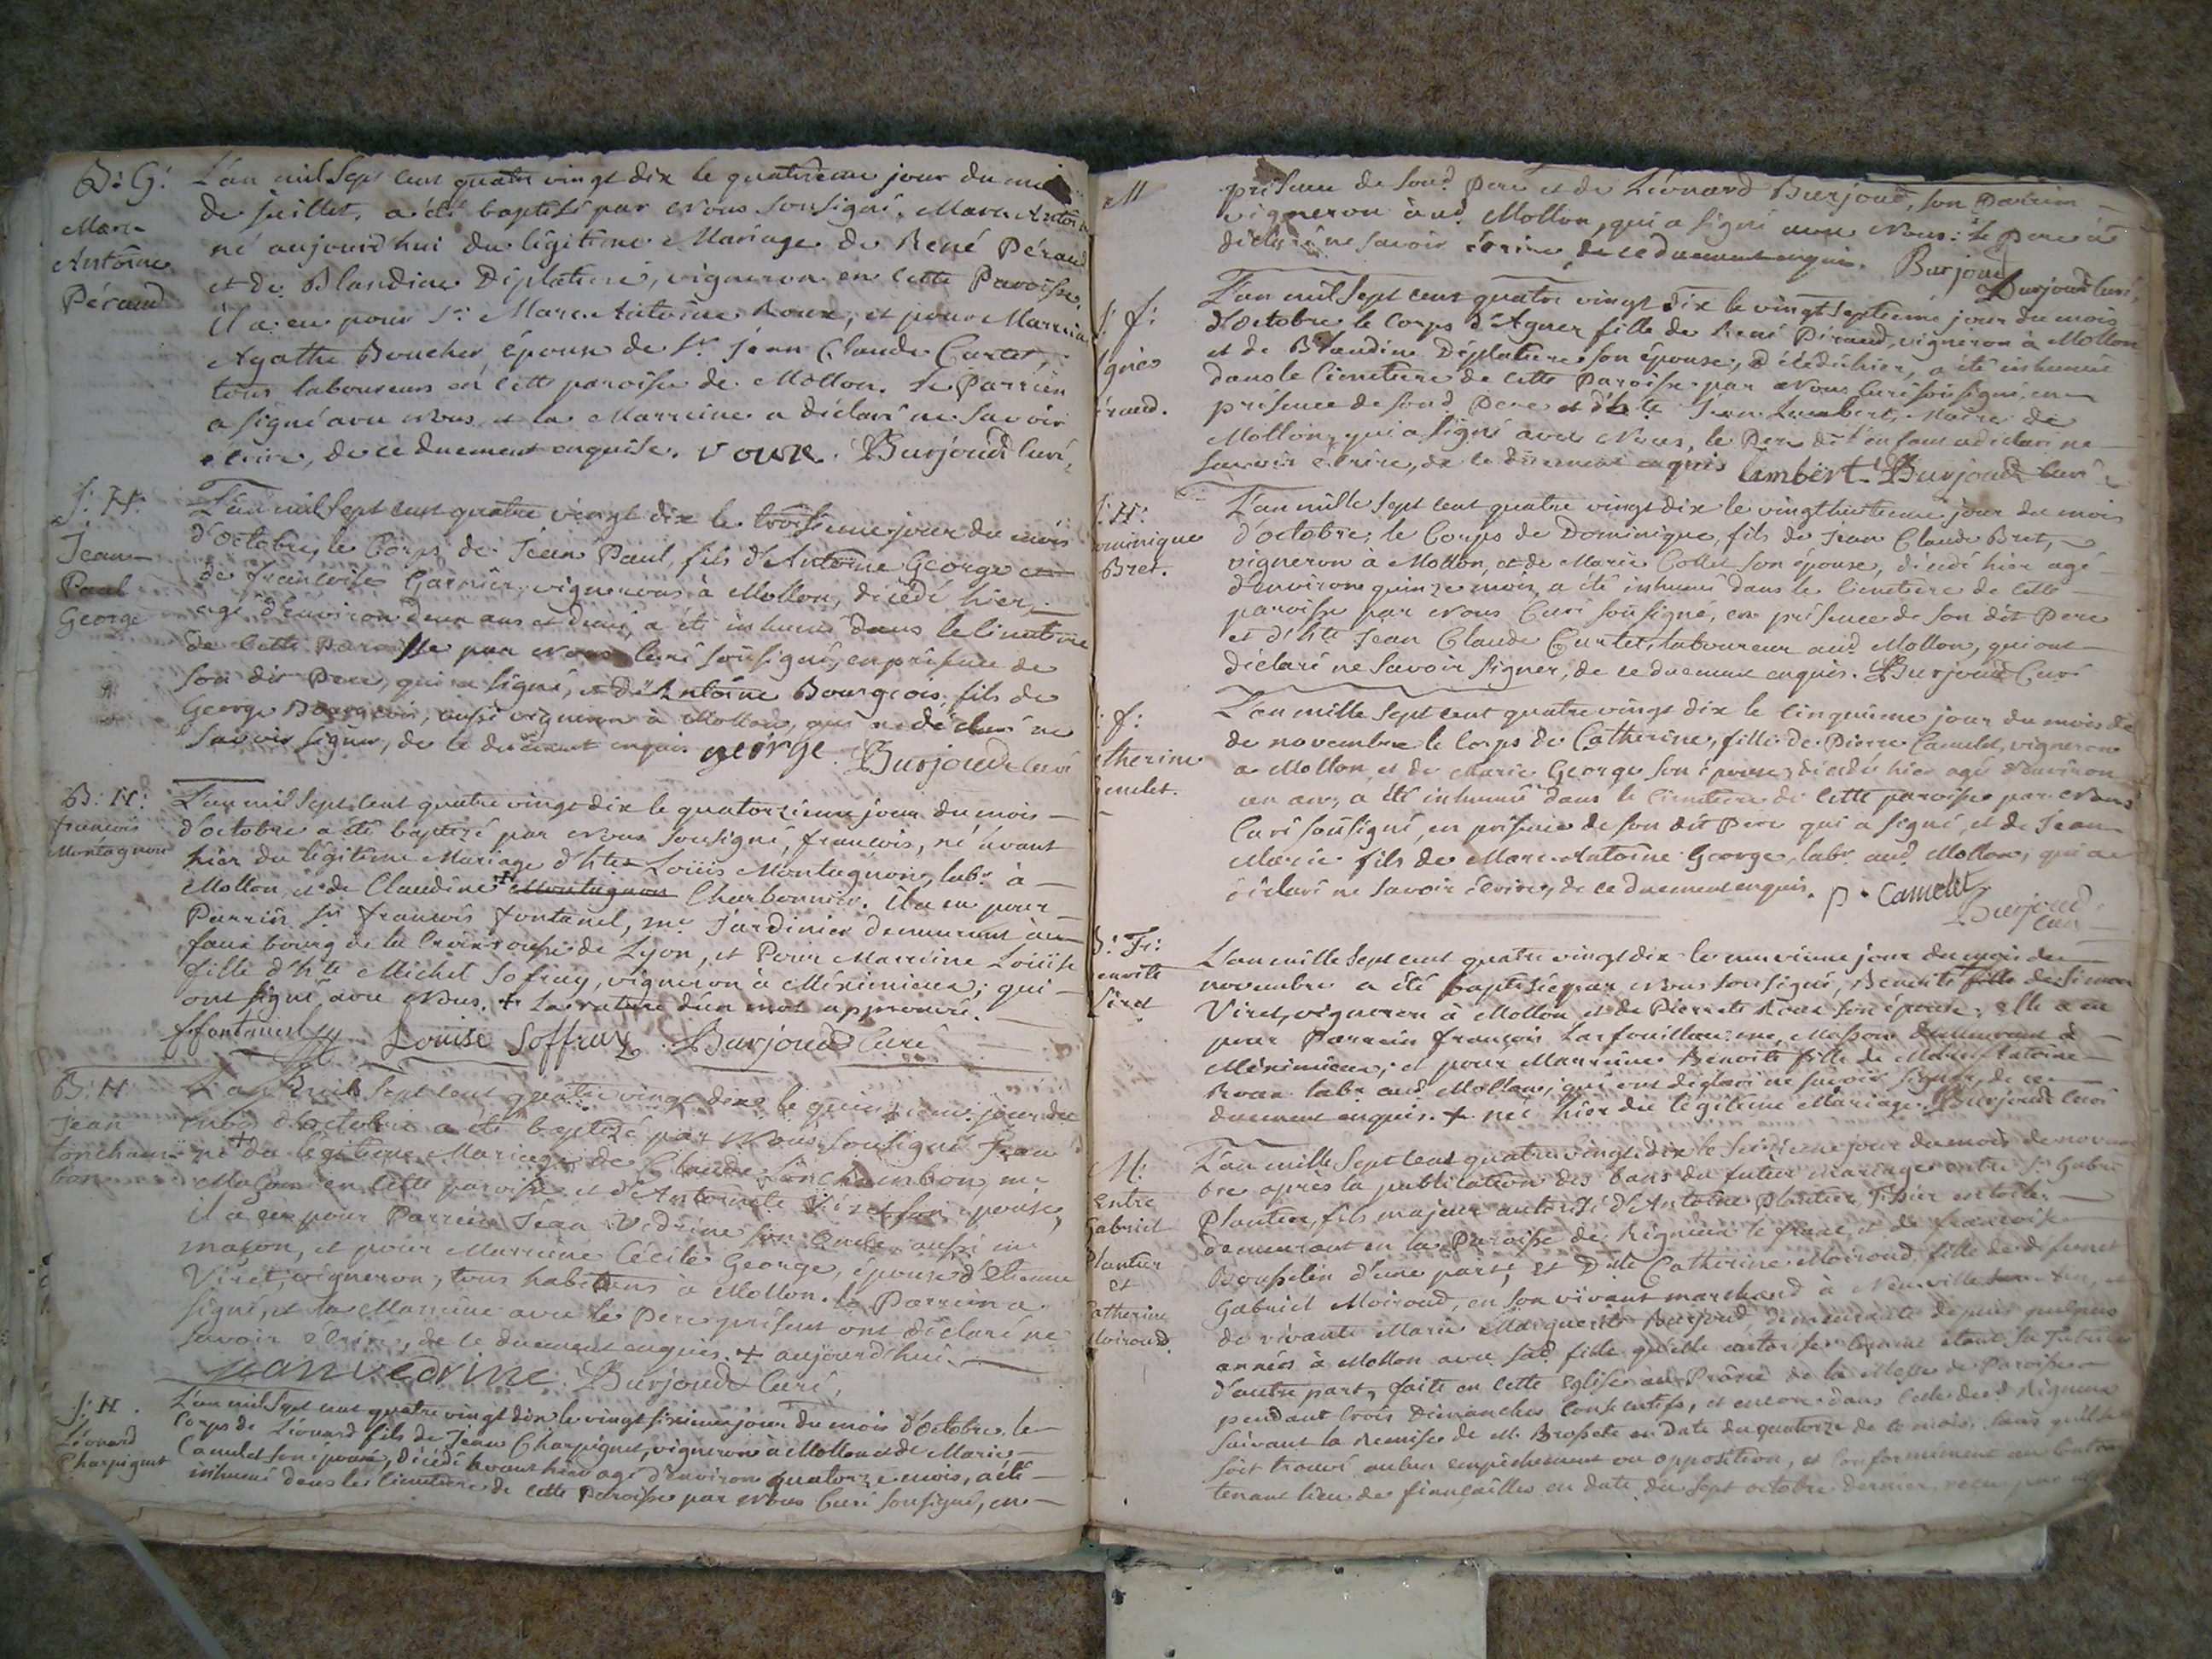 B: G:
Marc
Antoine
Péraud
L'an mil Sept cent quatre vingt dix le quatrieme jour du mois
de juillet, a été baptisé par Nous Soussigné, Marc Antoine
né aujourd'hui du légitime Mariage de René Péraud
et de Blandine Déplatiere, vigneron en cette Paroisse,
il a eu pour Sr. Marc Antoine Roux, et pour Marreine
Agathe Boucher, épouse de Sr. Jean Claude Curtet,
tous laboureurs en cette paroisse de Mollon. le Parrein
a signé avec Nous, et la Marreine a déclaré ne Savoir
écrire, de ce duement enquise. roux. Burjoud Curé,
S: H:
Jean
Paul
George
L'an mil Sept cent quatre vingt dix le troisieme jour du mois
d'octobre, le Corps de Jean Paul, fils d'Antoine George et
de françoise Garnier, vignerons à Mollon, décédé hier,
agé d'environ deux ans et demi, a été inhumé dans le Cimetiere
de cette Paroisse par Nous Curé Soussigné, en présence de
son dit Pere, qui a signé, et d'Antoine Bourgeois, fils de
George Bourgeois, aussi vigneron à Mollon, qui a déclaré ne
Savoir signer, de ce duement enquis george Burjoud Curé
B: H:
francois
Montagnon
L'an mil Sept cent quatre vingt dix le quatorzieme jour du mois
d'octobre a été baptisé par Nous Soussigné, francois, né avant
hier du légitime Mariage d'hte. Loüis Montagnon, labr. à
Mollon, et de Claudine + Montagnon Charbonnier. il a eu pour
Parrein Sr. francois fontanel, me. Jardinier demeurant au
faux bourg de la Croix rousse de Lyon, et Pour Marreine Loüise
fille d'hte Michel Sofray, vigneron à Méximieux; qui
ont signé avec Nous. + la rature d'un mot approuvé.
ffontanel Louise Soffray Burjoud Curé
B: H:
Jean
Loncham-
bon
L'an mil Sept cent quatre vingt dix le quinzieme jour du
mois d'octobre a été baptisé par Nous Soussigné Jean
né + du légitime Mariage de Claude Lonchambon, me
Maçon en cette paroisse et d'Antoinette Viret son épouse,
il a eu pour Parrein Jean Vedrine son oncle aussi me
maçon, et pour Marreine Cécile George, épouse d'Etienne
Viret, vigneron, tous habitans à Mollon. le Parrein a
signé, et la Marreine avec le Pere présent ont déclaré ne
savoir écrire, de ce duement enquis. + aujourd'hui.
jean vedrine Burjoud Curé,
S: H.
Léonard
Charpignet
L'an mil Sept cent quatre vingt dix le vingt sixieme jour du mois d'octobre, le
Corps de Léonard fils de Jean Charpignet, vigneron à Mollon et de Marie
Camelet son épouse, décédé avant hier agé d'environ quatorze mois, a été
inhumé dans le Cimetiere de cette Paroisse par Nous Curé Soussigné, en
M
présence de Soud. Pere et de Léonard Burjoud, son Parrein
vigneron aud. Mollon, qui a signé avec Nous: le Pere a
déclaré ne savoir écrire de ce duement enquis. Burjoud
Burjoud Curé,
S: f:
Agnès
Péraud.
L'an mil Sept cent quatre vingt dix le vingt septieme jour du mois
d'octobre le Corps d'Agnes fille de René Péraud, vigneron à Mollon
et de Blandine Déplatiere son épouse, décédé hier, a été inhumé
dans le Cimetiere de cette Paroisse par Nous Curé soussigné, en
présence de soud. Pere et d'hte Jean Lambert, Maire de
Mollon, qui a signé avec Nous, le Pere dt l'enfant a déclaré ne
savoir écrire, de ce duement enquis lambert Burjoud Curé
S: H:
Dominique
Bret.
L'an mille Sept cent quatre vingt dix le vingt huitieme jour du mois
d'octobre, le Corps de Dominique, fils de Jean Claude Bret,
vigneron à Mollon, et de Marie Collet son épouse, décédé hier agé
d'environ quinze mois a été inhumé dans le Cimetiere de cette
paroisse par Nous Curé soussigné, en présence de son dit Pere
et d'hte Jean Claude Curtet, laboureur aud. Mollon, qui ont
déclaré ne Savoir signer, de ce duement enquis. Burjoud Curé
S: f:
Catherine
Camelet.
L'an mille Sept cent quatre vingt dix le cinquieme jour du mois de
de novembre le Corps de Catherine, fille de Pierre Camelet, vigneron
a Mollon, et de Marie George son épouse, décédé hier agé d'environ
un an, a été inhumé dans le Cimetiere de cette paroisse par Nous
Curé soussigné, en présence de son dit Pere qui a signé, et de Jean
Marie fils de Marc Antoine George, labr. aud. Mollon, qui a
déclaré ne savoir écrire, de ce duement enquis. p. Camelet
Burjoud
Curé
B: Fe:
Benoite
Viret
L'an mille Sept cent quatre vingt dix le neuvieme jour du mois de
novembre a été baptisée par Nous soussigné, Benoite fille de Simon
Viret, vigneron à Mollon et de Pierrette Roux son épouse. elle a eu
pour Parrein françois Lasfouilloux me. Masson demeurant à
Méximieux, et pour Marreine Benoite fille de Marc Antoine
Roux labr. aud. Mollon, qui ont déclaré ne savoir signer, de ce
duement enquis. + née hier du légitime Mariage. Burjoud Curé
M:
Entre
Gabriel
Plantier
et
Catherine
Moiroud.
L'an mille Sept cent quatre vingt dix le seizieme jour du mois de novem
bre après la publication des bans du futur mariage entre Sr. Gabriel
Plantier, fils majeur autorisé d'Antoine Plantier Tissier en toile,
demeurant en la Paroisse de Rigneux le franc, et de françoise
Bousselin d'une part, et Dlle Catherine Moiroud, fille de défunt
Gabriel Moiroud, en son vivant marchand à Neuville sur Ain, et
de vivante Marie Marguerite Burjoud, demeurante depuis quelques
années à Mollon avec sad. fille qu'elle autorise comme étant sa Tutrice
d'autre part, faite en cette Eglise au Prône de la Messe de Paroisse
pendant trois Dimanches consécutifs, et encore dans celle dud. Rigneux
suivant la Remise de M. Brossete en Date du quatorze de ce mois, sans qu'il se
soit trouvé aucun empêchement ou opposition, et conformément au Contrat
tenant lieu de fiançailles en date du Sept octobre dernier, recu par